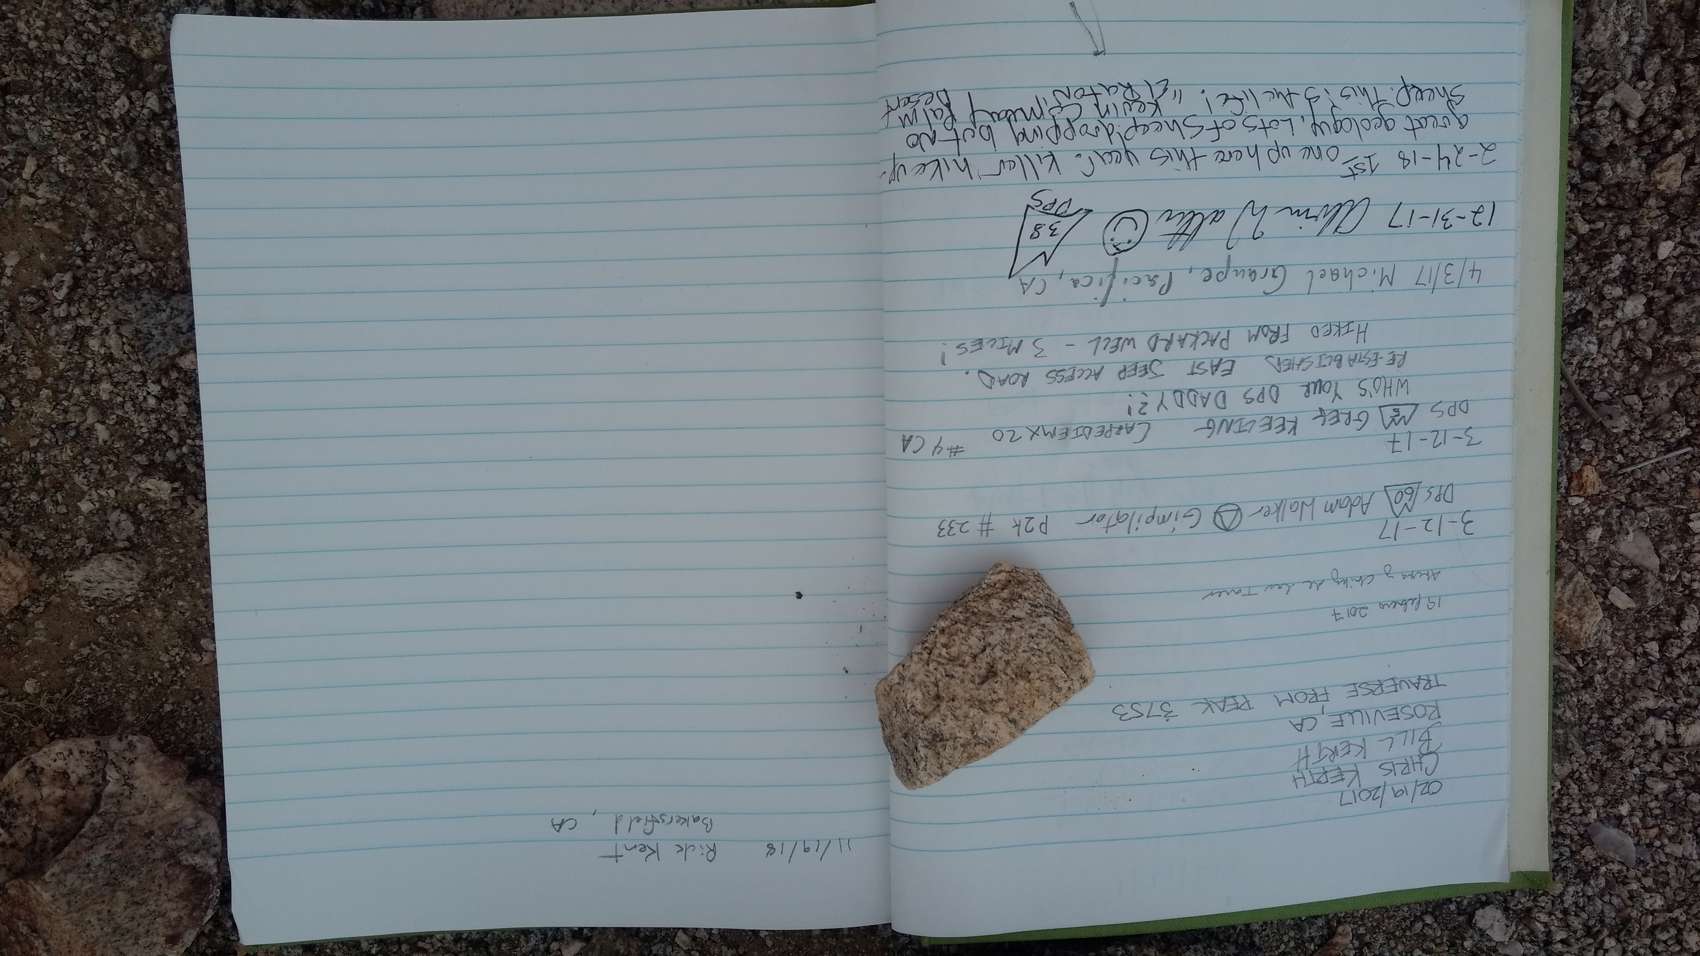 02/19/2017
CHRIS KERTH
BILL KERTH
ROSEVILLE, CA
TRAVERSE FROM PEAK 3753
19 2017
3-12-17
DPS 60 Adam Walker Gimpilator P2k # 233
3-12-17
DPS GREG KEELING CARPEDIEMX20 #4 CA
WHO'S YOUR DPS DADDY?!
RE-ESTABLISHED EAST JEEP ACCESS ROAD.
HIKED FROM PACKARD WELL - 3 MILES!
4/3/17 Michael Graupe, Pacifica, CA
12-31-17 38
DPS
2-24-18 1ST one up here this year. Killer hike up.
great geology. Lots of sheep dropping but no
sheep. This is the life! "El Raton"
Kevin Palm Desert
11/19/18 Rick Kent
Bakersfield, CA